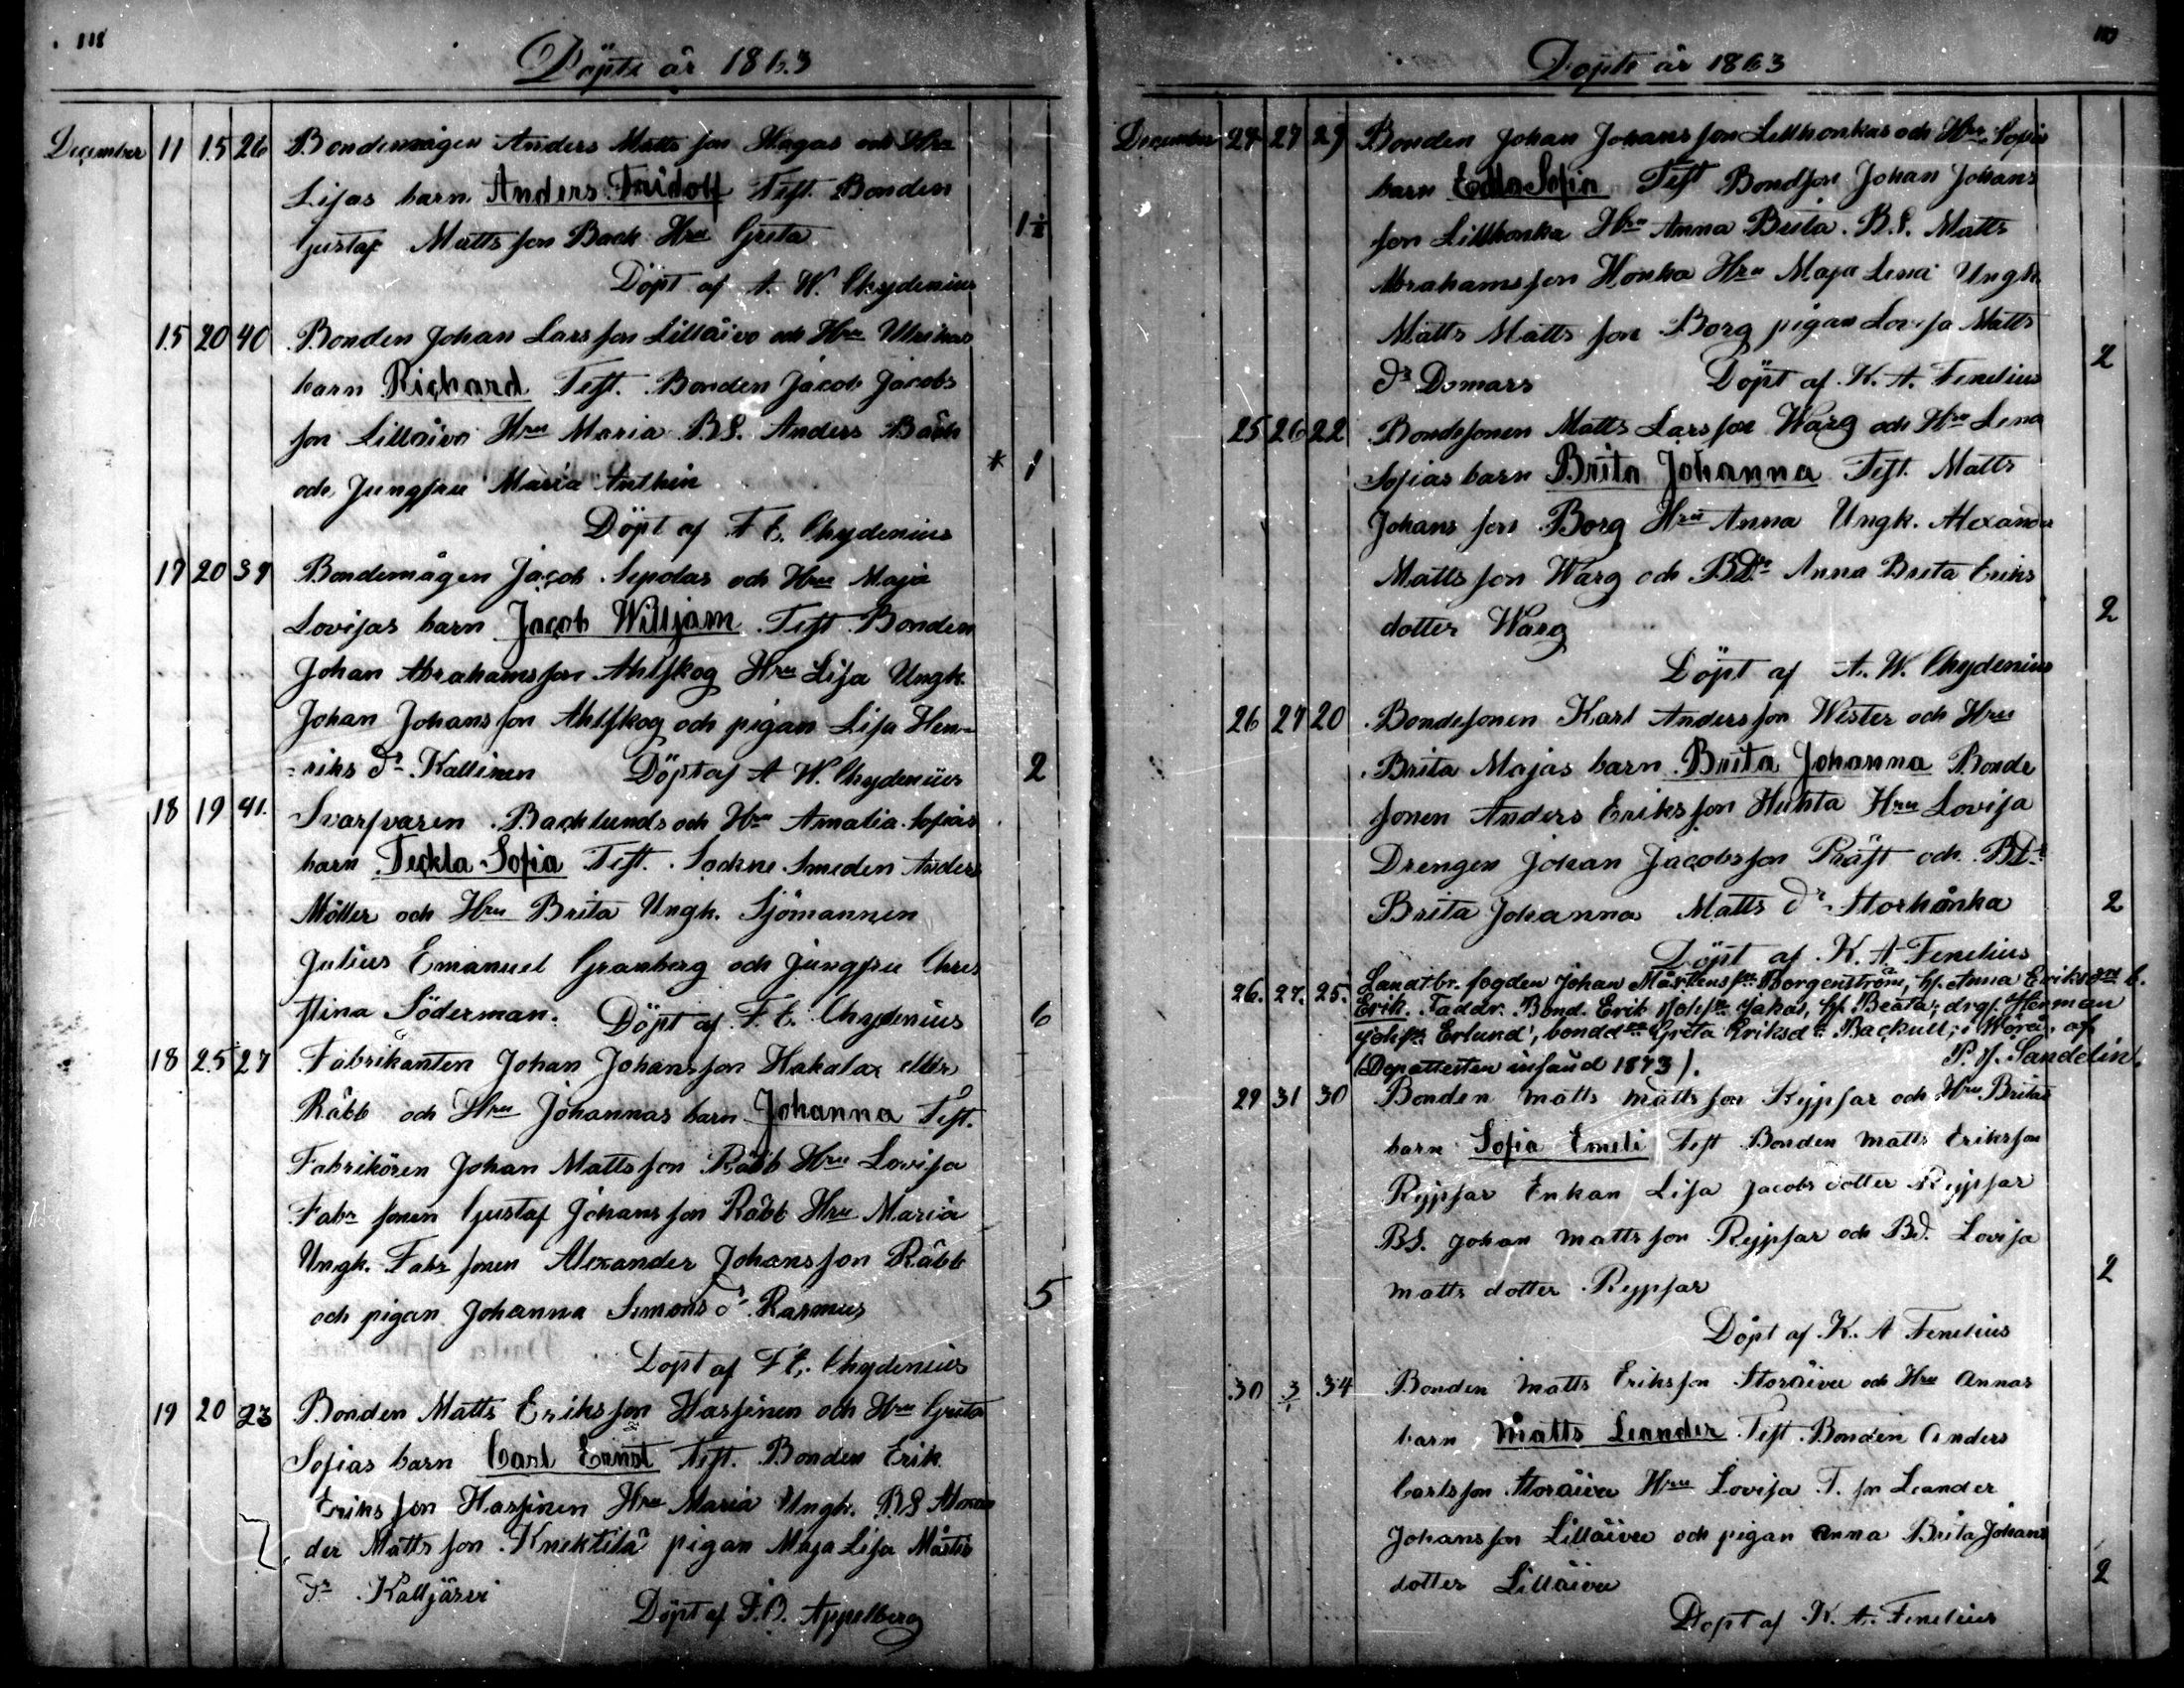 118
Döpte år 1863
December 11 15 26 Bondemågen Anders Matts son Hagas och Hru
Lisas barn Anders Fridolf Test. Bonden
Gustaf Matts son Back Hru Greta 1½
Döpt af A. W. Chydenius
15 20 40 Bonden Johan Lars son Lillåivo och Hru Ulrikas
barn Richard Test. Bonden Jacob Jacobs
son Lillåivo Hru Maria BS. Anders Back
och Jungfru Maria Anthin * 1
Döpt af F E. Chydenius
17 20 39 Bondemågen Jacob Sepolas och Hru Maja
Lovisas barn Jacob Willijam Test Bonden
Johan Abrahams son Ahlskog Hru Lisa Ungk.
Johan Johans son Ahlskog och pigan Lisa Hen-
-riks dr Kallinen Döpt af A W. Chydenius 2
18 19 41. Svarfvaren Backlunds och Hru Amalia Sofias
barn Teckla Sofia Test. Sockne Smeden Anders
Möller och Hru Brita Ungk. Sjömannen
Julius Emanuel Granberg och jungfru Chris
stina Söderman. Döpt af F. E. Chydenius 6
18 25 27 Fabrikanten Johan Johans son Hakalax eller
Råbb och Hru Johannas barn Johanna Test.
Fabrikören Johan Matts son Råbb Hru Lovisa
Fabr sonen Gustaf Johans son Råbb Hru Maria
Ungk. Fabr sonen Alexander Johans son Råbb
och pigan Johanna Simons dr Rasmus 5
Döpt af F E. Chydenius
19 20 23 Bonden Matts Eriks son Hassinen och Hru Greta
Sofias barn Carl Ernst Test. Bonden Erik
Eriks son Hassinen Hru Maria Ungk. B.S Alexan
der Matts son Knektilä pigan Maja Lisa Matts
dr Kalljärvi
Döpt af F. B. Appelberg
Döpte år 1863
December 24 27 29 Bonden Johan Johans son Lillhonkas och Hru Sofia
barn Edla Sofia Test Bondson Johan Johans
son Lillhonka Hru Anna Brita. B.S. Matts
Abrahams son Honka Hru Maja Lena Ungk.
Matts Matts son Borg pigan Lovisa Matts
dr Domars Döpt af K. A. Fenelius 2
25 26 22 Bondesonen Matts Lars son Warg och Hru Lena
Sofias barn Brita Johanna Test. Matts
Johans son Borg Hru Anna Ungk. Alexander
Matts son Warg och BDr Anna Brita Eriks
dotter Warg 2
Döpt af A. W. Chydenius
26 27 20 Bondesonen Karl Anders son Wester och Hru
Brita Majas barn Brita Johanna Bonde
sonen Anders Eriks son Huhta Hru Lovisa
Drengen Johan Jacobs son Präst och BDr
Brita Johanna Matts dr Storhånka 2
Döpt af K. A Fenelius
26. 27. 25. Landtbr. fogden Johan Mårtens sn Borgenström, h. Anna Eriksdrs b.
Erik. Faddr. Bond. Erik Johsn Jakas, h. Beata; drg. Herman
Johsn Erlund, bonddr Greta Eriksdr Backull; i Wörå, af
(Dopattesten insänd 1873). P. J. Sandelin.
29 31 30 Bonden Matts Matts son Rypsar och Hru Britas
barn Sofia Emeli Test Bonden Matts Eriksson
Rypsar Enkan Lisa Jacobs dotter Rypsar
BS. Johan Matts son Rypsar och Bd. Lovisa
Matts dotter Rypsar 2
Döpt af K. A Fenelius
30 3/1 34 Bonden Matts Eriks son Storåivu och Hru Annas
barn Matts Leander Test Bonden Anders
Carls son Storåivu Hru Lovisa T. sn Leander
Johans son Lillåivu och pigan Anna Brita Johans
dotter Lillåivu 2
Döpt af K. A. Fenelius